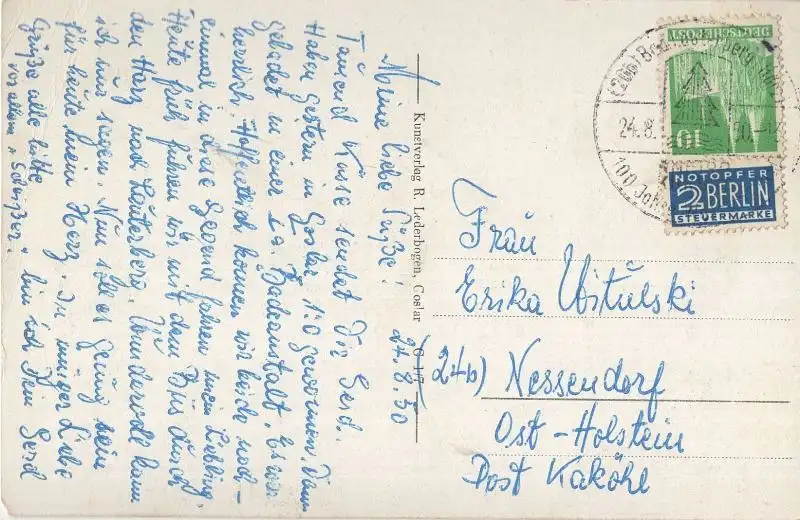 24.8.50
Meine liebe Süße!
Tausend Küsse sendet Dir Gerd.
Haben gestern in Goslar 1:0 gewonnen. Dann
gebadet in einer Ia. Badeanstalt. Es war
herrlich. Hoffentlich können wir beide noch-
einmal in diese Gegend fahren mein Liebling.
Heute früh fuhren wir mit dem Bus durch
den Harz nach Lauterberg. Wundervoll kann
ich nur sagen. Nun soll es genug sein
für heute, mein Herz. In inniger Liebe
Grüße alle bitte bin ich Dein Gerd
vor allem
Kunstverlag R. Lederbogen, Goslar C 17
DEUTSCHE POST
10
24.8.
100 Jahre
NOTOPFER
2 BERLIN
STEUERMARKE
Frau
Erika Witulski
(24b) Nessendorf
Ost-Holstein
Post Kaköhl